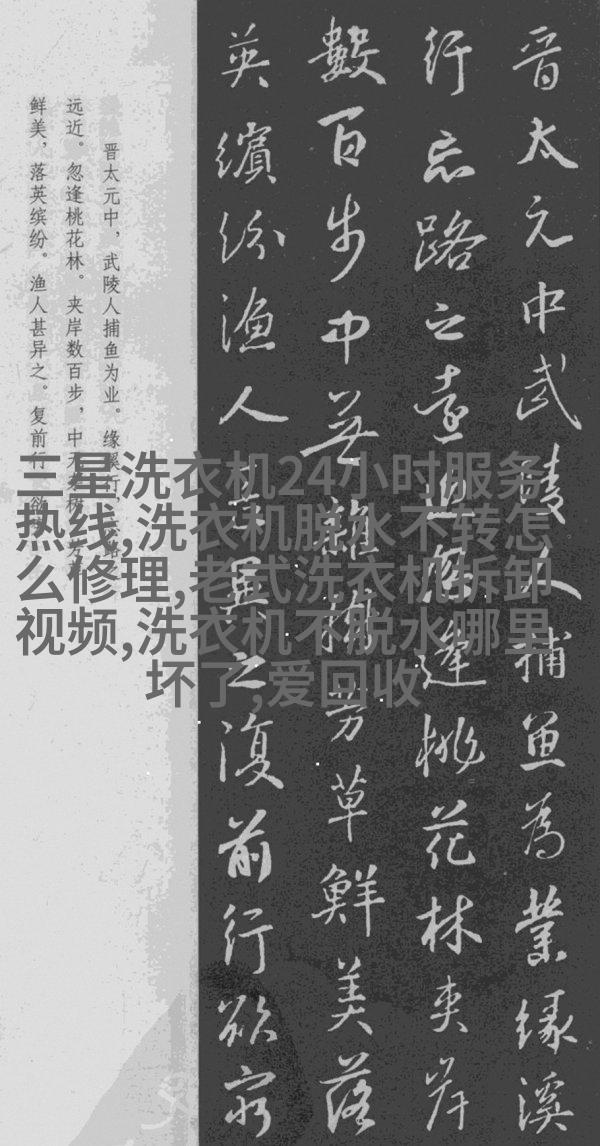 晋太元中武陵人捕魚為業緣溪
行忘路之遠近忽逢桃花林夾岸
數百步中無雜樹芳草鮮美落
英繽紛漁人甚異之復前行欲窮
晋太元中，武陵人捕鱼为业。缘溪行，忘路之
远近。忽逢桃花林。夹岸数百步，中无杂树，芳草
鲜美，落英缤纷。渔人甚异之。复前行，欲
三星洗衣机24小时服务
热线,洗衣机脱水不转怎
么修理,老式洗衣机拆卸
视频,洗衣机不脱水哪里
坏了,爱回收